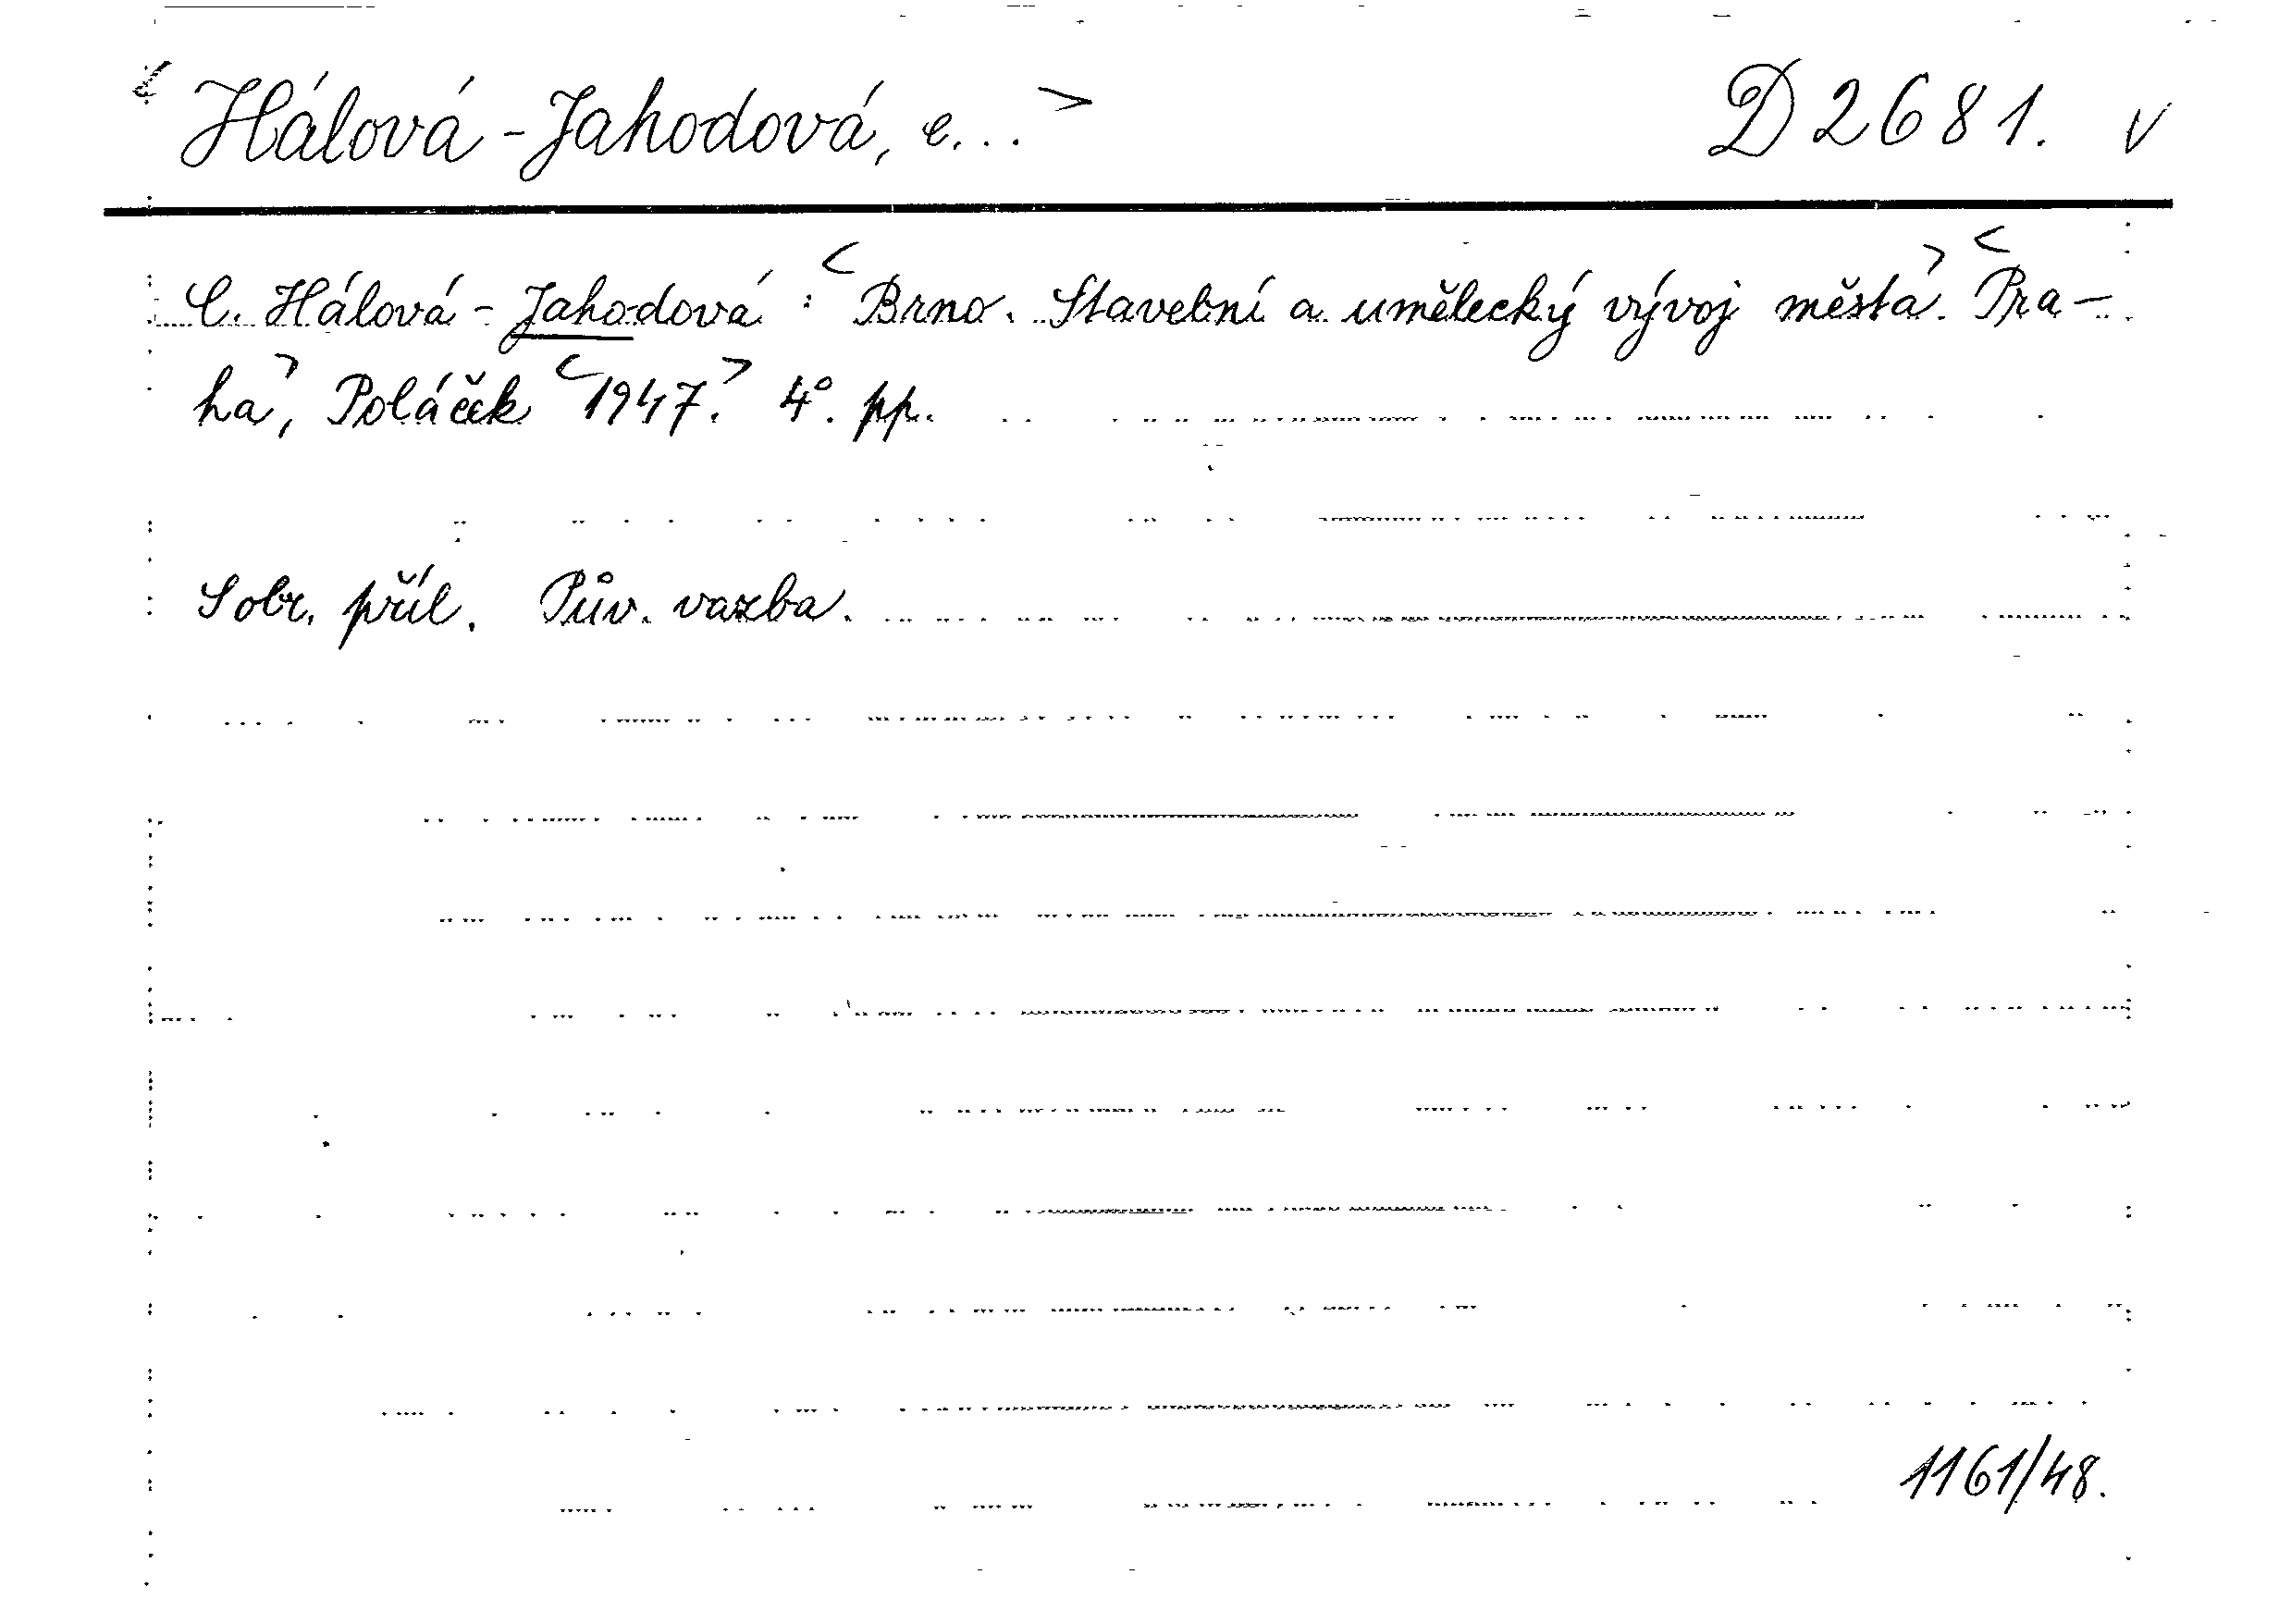 <Hálová-Jahodová, C...> D 2681. v
C. Hálová-Jahodová: <Brno. Stavební a umělecký vývoj města>. <Pra-
ha>, Poláček <1947.> 4°. pp.
Sobr. příl. Pův. vazba.
1161/48.